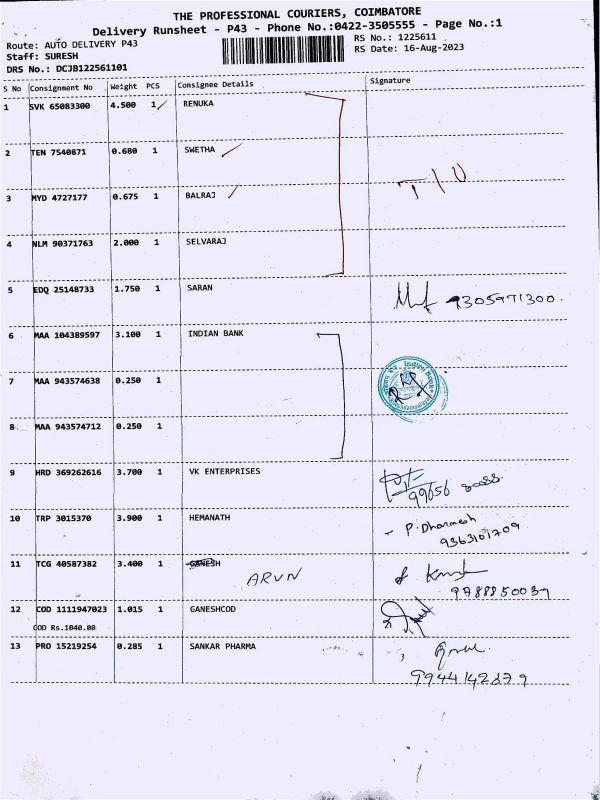 THE PROFESSIONAL COURIERS, COIMBATORE
Delivery Runsheet - P43 - Phone No.:0422-3505555 - Page No.:1
Route: AUTO DELIVERY P43
Staff: SURESH
DRS No.: DCJB122561101
RS No.: 1225611
RS Date: 16-Aug-2023
S No Consignment No Weight PCS Consignee Details Signature
1 SVK 65083300 4.500 1 RENUKA
2 TEN 7540871 0.680 1 SWETHA
3 MYD 4727177 0.675 1 BALRAJ
4 NLM 90371763 2.000 1 SELVARAJ
5 EDQ 25148733 1.750 1 SARAN 9305971300.
6 MAA 104389597 3.100 1 INDIAN BANK
7 MAA 943574638 0.250 1 Indian Bank
8 MAA 943574712 0.250 1
9 HRD 369262616 3.700 1 VK ENTERPRISES
10 TRP 3015370 3.900 1 HEMANATH - P. Dharmesh
9363101709
11 TCG 40587382 3.400 1 GANESH
ARUN
12 COD 1111947023 1.015 1 GANESHCOD
COD Rs.1040.00
13 PRO 15219254 0.285 1 SANKAR PHARMA